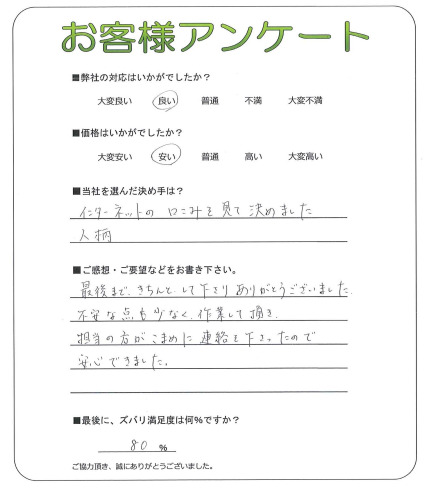 お客様アンケート
■弊社の対応はいかがでしたか？
大変良い 良い 普通 不満 大変不満
■価格はいかがでしたか？
大変安い 安い 普通 高い 大変高い
■当社を選んだ決め手は？
インターネットの口こみを見て決めました
人柄
■ご感想・ご要望などをお書き下さい。
最後まで、きちんとして下さりありがとうございました。
不安な点も少なく、作業して頂き、
担当の方がこまめに連絡を下さったので
安心できました。
■最後に、ズバリ満足度は何%ですか？
80 %
ご協力頂き、誠にありがとうございました。